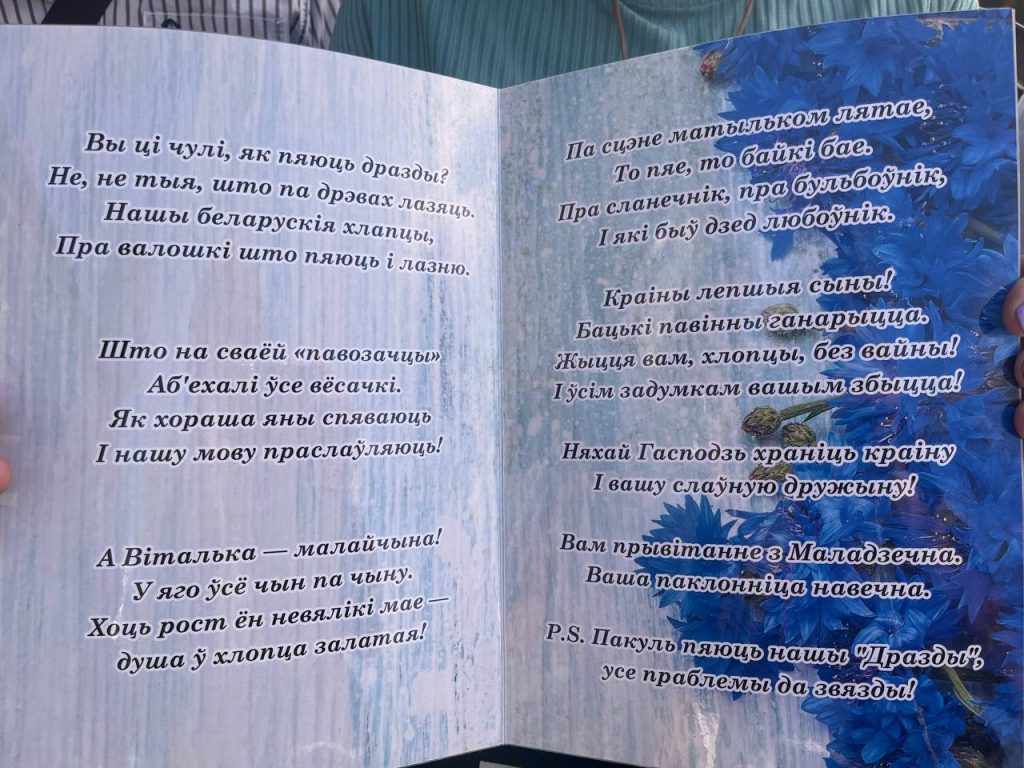 Вы ці чулі, як пяюць дразды?
Не, не тыя, што па дрэвах лазяць.
Нашы беларускія хлапцы,
Пра валошкі што пяюць і лазню.
Што на сваёй «павозачцы»
Аб'ехалі ўсе вёсачкі.
Як хораша яны спяваюць
І нашу мову праслаўляюць!
А Віталька — малайчына!
У яго ўсё чын па чыну.
Хоць рост ён невялікі мае —
душа ў хлопца залатая!
Па сцэне матыльком лятае,
То пяе, то байкі бае.
Пра сланечнік, пра бульбоўнік,
І які быў дзед любоўнік.
Краіны лепшыя сыны!
Бацькі павінны ганарыцца.
Жыцця вам, хлопцы, без вайны!
І ўсім задумкам вашым збыцца!
Няхай Гасподзь храніць краіну
І вашу слаўную дружыну!
Вам прывітанне з Маладзечна.
Ваша паклонніца навечна.
P.S. Пакуль пяюць нашы "Дразды",
усе праблемы да звязды!